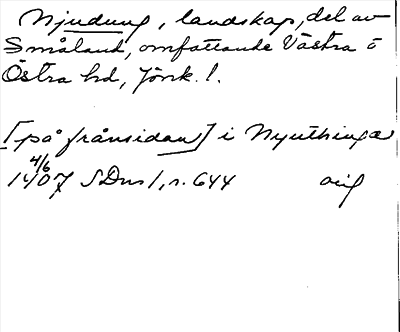 Njudung, landskap, del av
Småland, omfattande Västra o
Östra hd, Jönk. l.
[på frånsidan] i Nyuthinga
4/6
1407 SDns 1, n. 644 orig